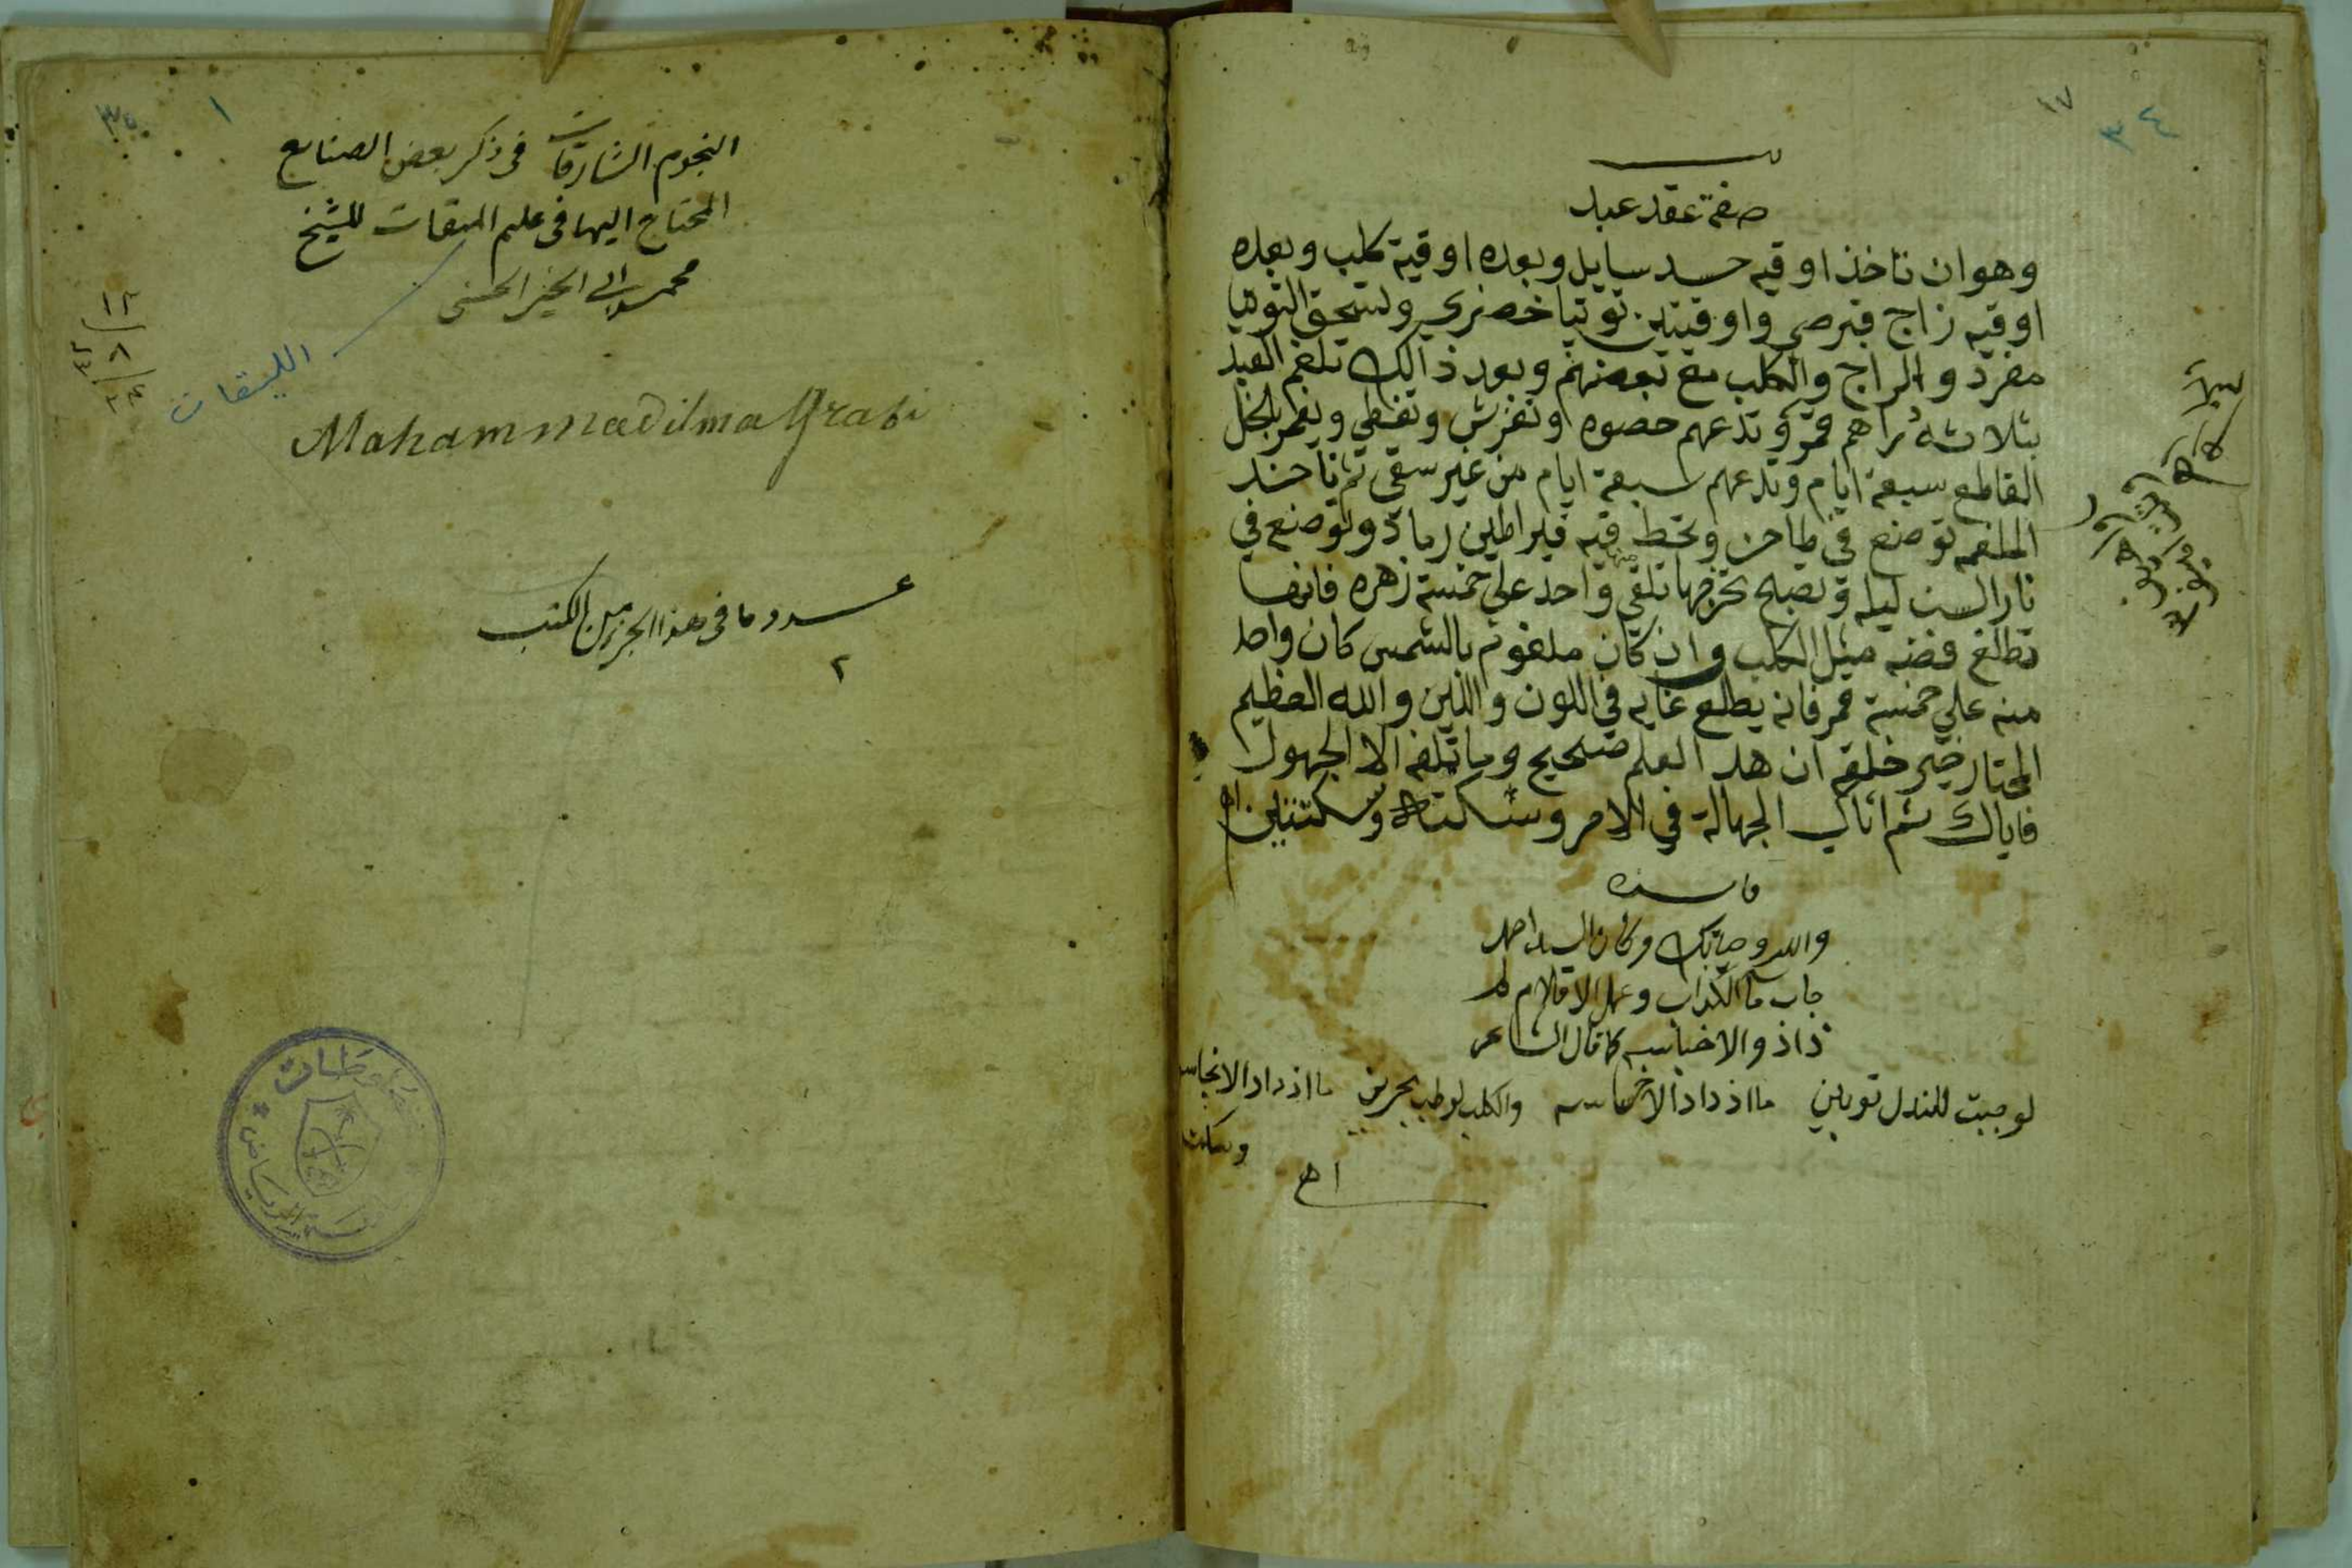 ٣٤
١٧
صفة عقد عبد
وهو ان تاخذ اوقيه حسد سايل وبعده اوقية كلب وبعده
اوقيه زاج قبرصي واوقيتين توتيا خضري وتسحق التوتيا
مفرد والزاج والكلب مع بعضهم وبعد ذالك تلغم العبد
بثلاثة دراهم قمر وتدعهم حصوه وتفرش وتغطي ويغمر بالخل
القاطع سبعة ايام وتدعهم سبعة ايام من غير سقي ثم تاخذ
الملغمه توضع في طاجن وتحط فيه قيراطين رماد وتوضع في
نار السبت ليله وتصبح تخرجها تلقي منها واحد علي خمسة زهره فانها
تطلع فضه مثل الكلب وان كان ملغوم بالشمس كان واحد
منه علي خمسة قمر فانه يطلع غايه في اللون واللين والله العظيم
المختار خير خلقه ان هد العلم صحيح وما تلفه الا الجهول
فاياك ثم اياك الجهالة في الامر وسكتك وسكتين اه
والله وحياتك وكان السيد احمد
جاب ما الكداب وعمل الاقلام له
ذاذ والاخبايبه كما قال الشاعر
لو جبت للندل توبين ما اذداد الا خساسه والكلب لو طب بحرين ما اذداد الا نجاسه
وسكت
اه
٣٥
١
النجوم الشارقات فى ذكر بعض الصنايع
المحتاج اليها فى علم الميقات للشيخ
محمد ابى الخير الحسنى
الليقات
Mahammadilmagrabi
عدد ما فى هذا الجزء من الكتب
٢